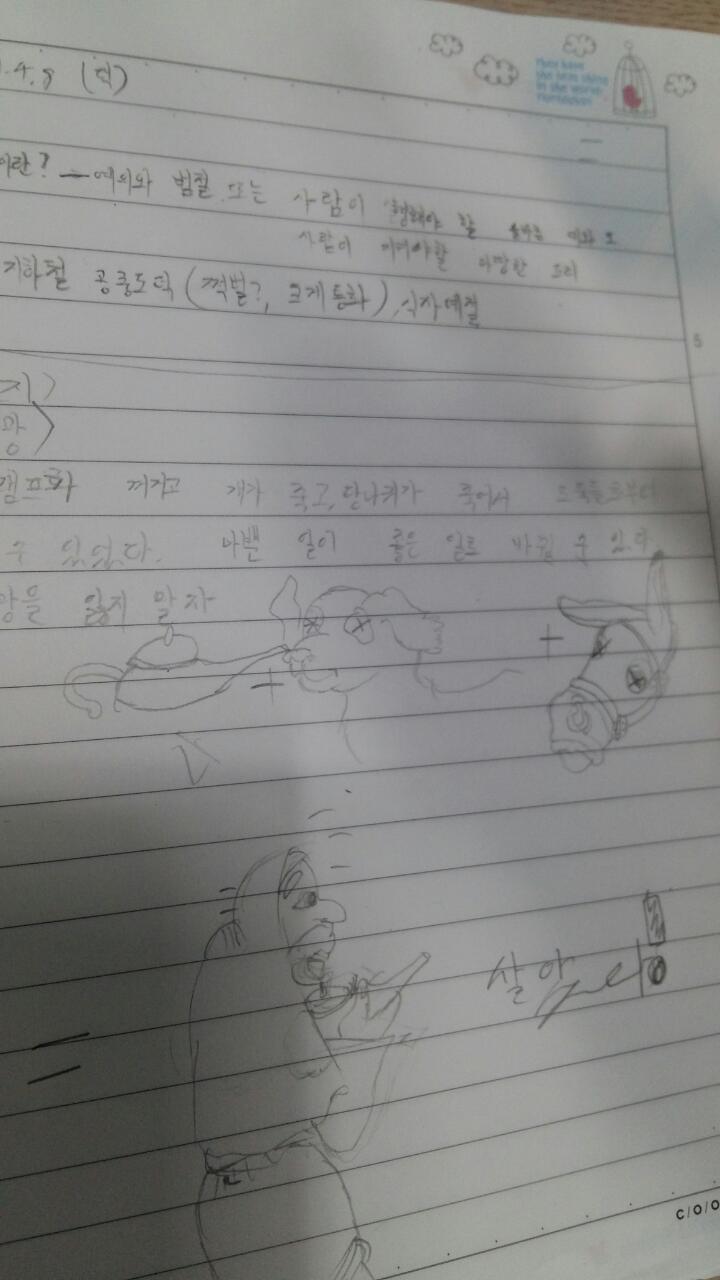 .4.8 (덕)
이란? - 예의와 범절 또는 사람이 행해야 할
사람이 마땅한 도리
지하철 공중도덕 (쩍벌?, 크게통화), 식사예절
지>
광>
램프가 꺼지고 개가 죽고, 당나귀가 죽어서 도둑들로부터
수 있었다. 나쁜 일이 좋은 일로 바뀔 수 있다.
망을 잃지 말자
+ +
살았다!
5
C/O/O